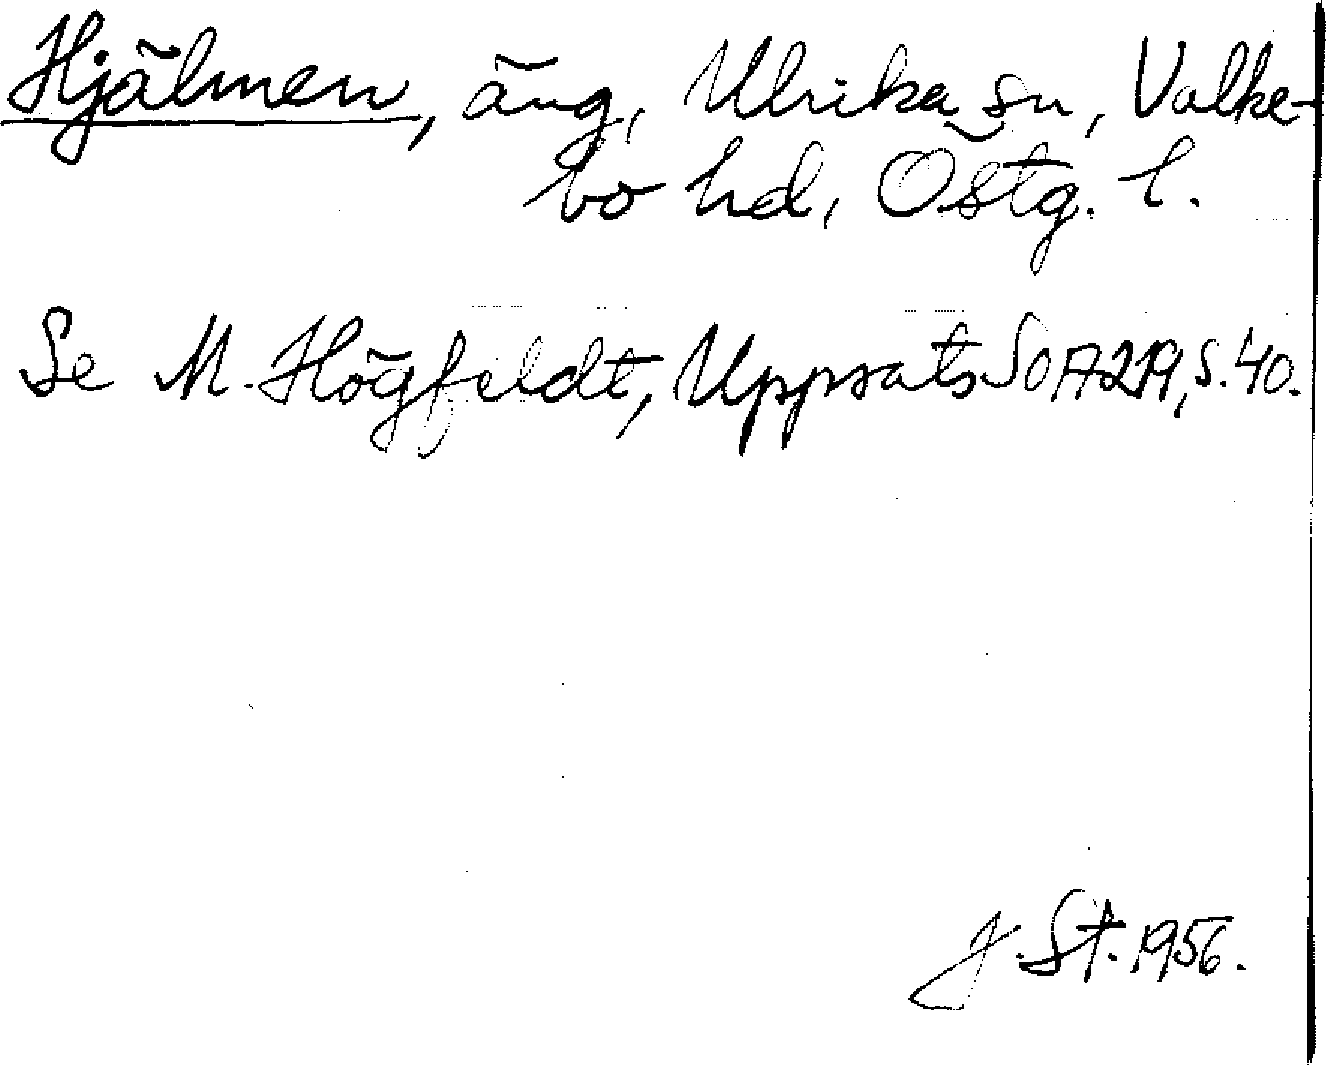 Hjälmen, äng, Ulrika sn, Valke-
bo hd, Östg. l.
Se M. Högfeldt, Uppsats SOA 219, s. 40.
J. St. 1956.